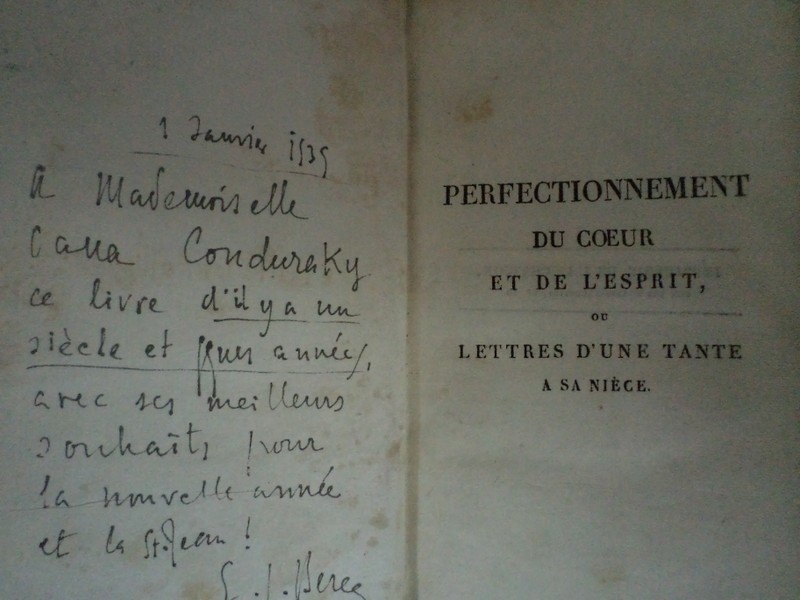 1 Janvier 1939
A Mademoiselle
Conduraky
ce livre d'il y a un
siècle et qques années,
avec ses meilleurs
souhaits pour
la nouvelle année
et la St. Jean !
PERFECTIONNEMENT
DU COEUR
ET DE L'ESPRIT,
OU
LETTRES D'UNE TANTE
A SA NIÈCE.